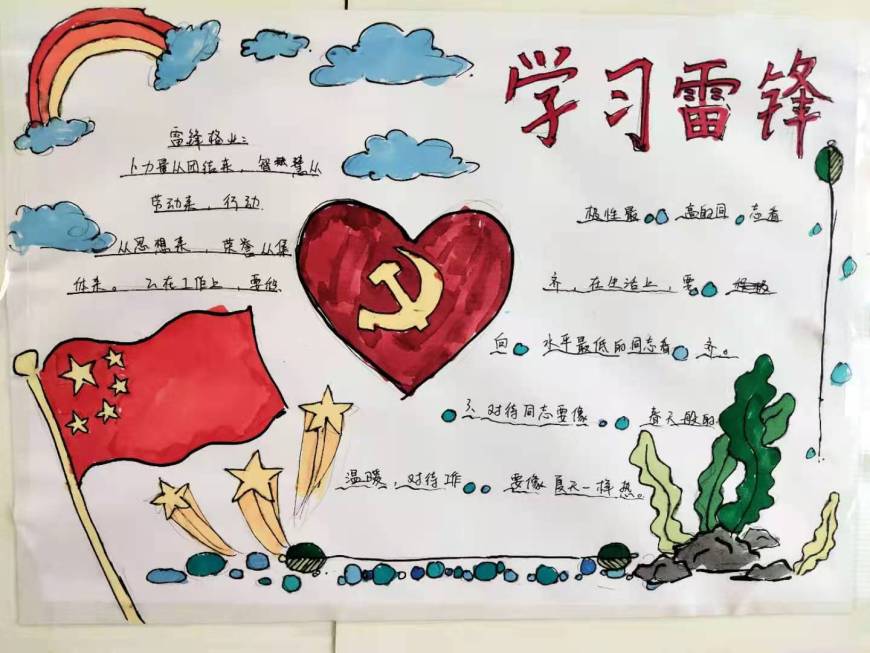 学习雷锋
雷锋格业:
1、力量从团结来，智慧从
劳动来，行动
从思想来，荣誉从集
体来。 2、在工作上，要向
极性最高的同志看
齐，在生活上，要
向水平最低的同志看齐。
3、对待同志要像春天般的
温暖，对待工作要像夏天一样热。